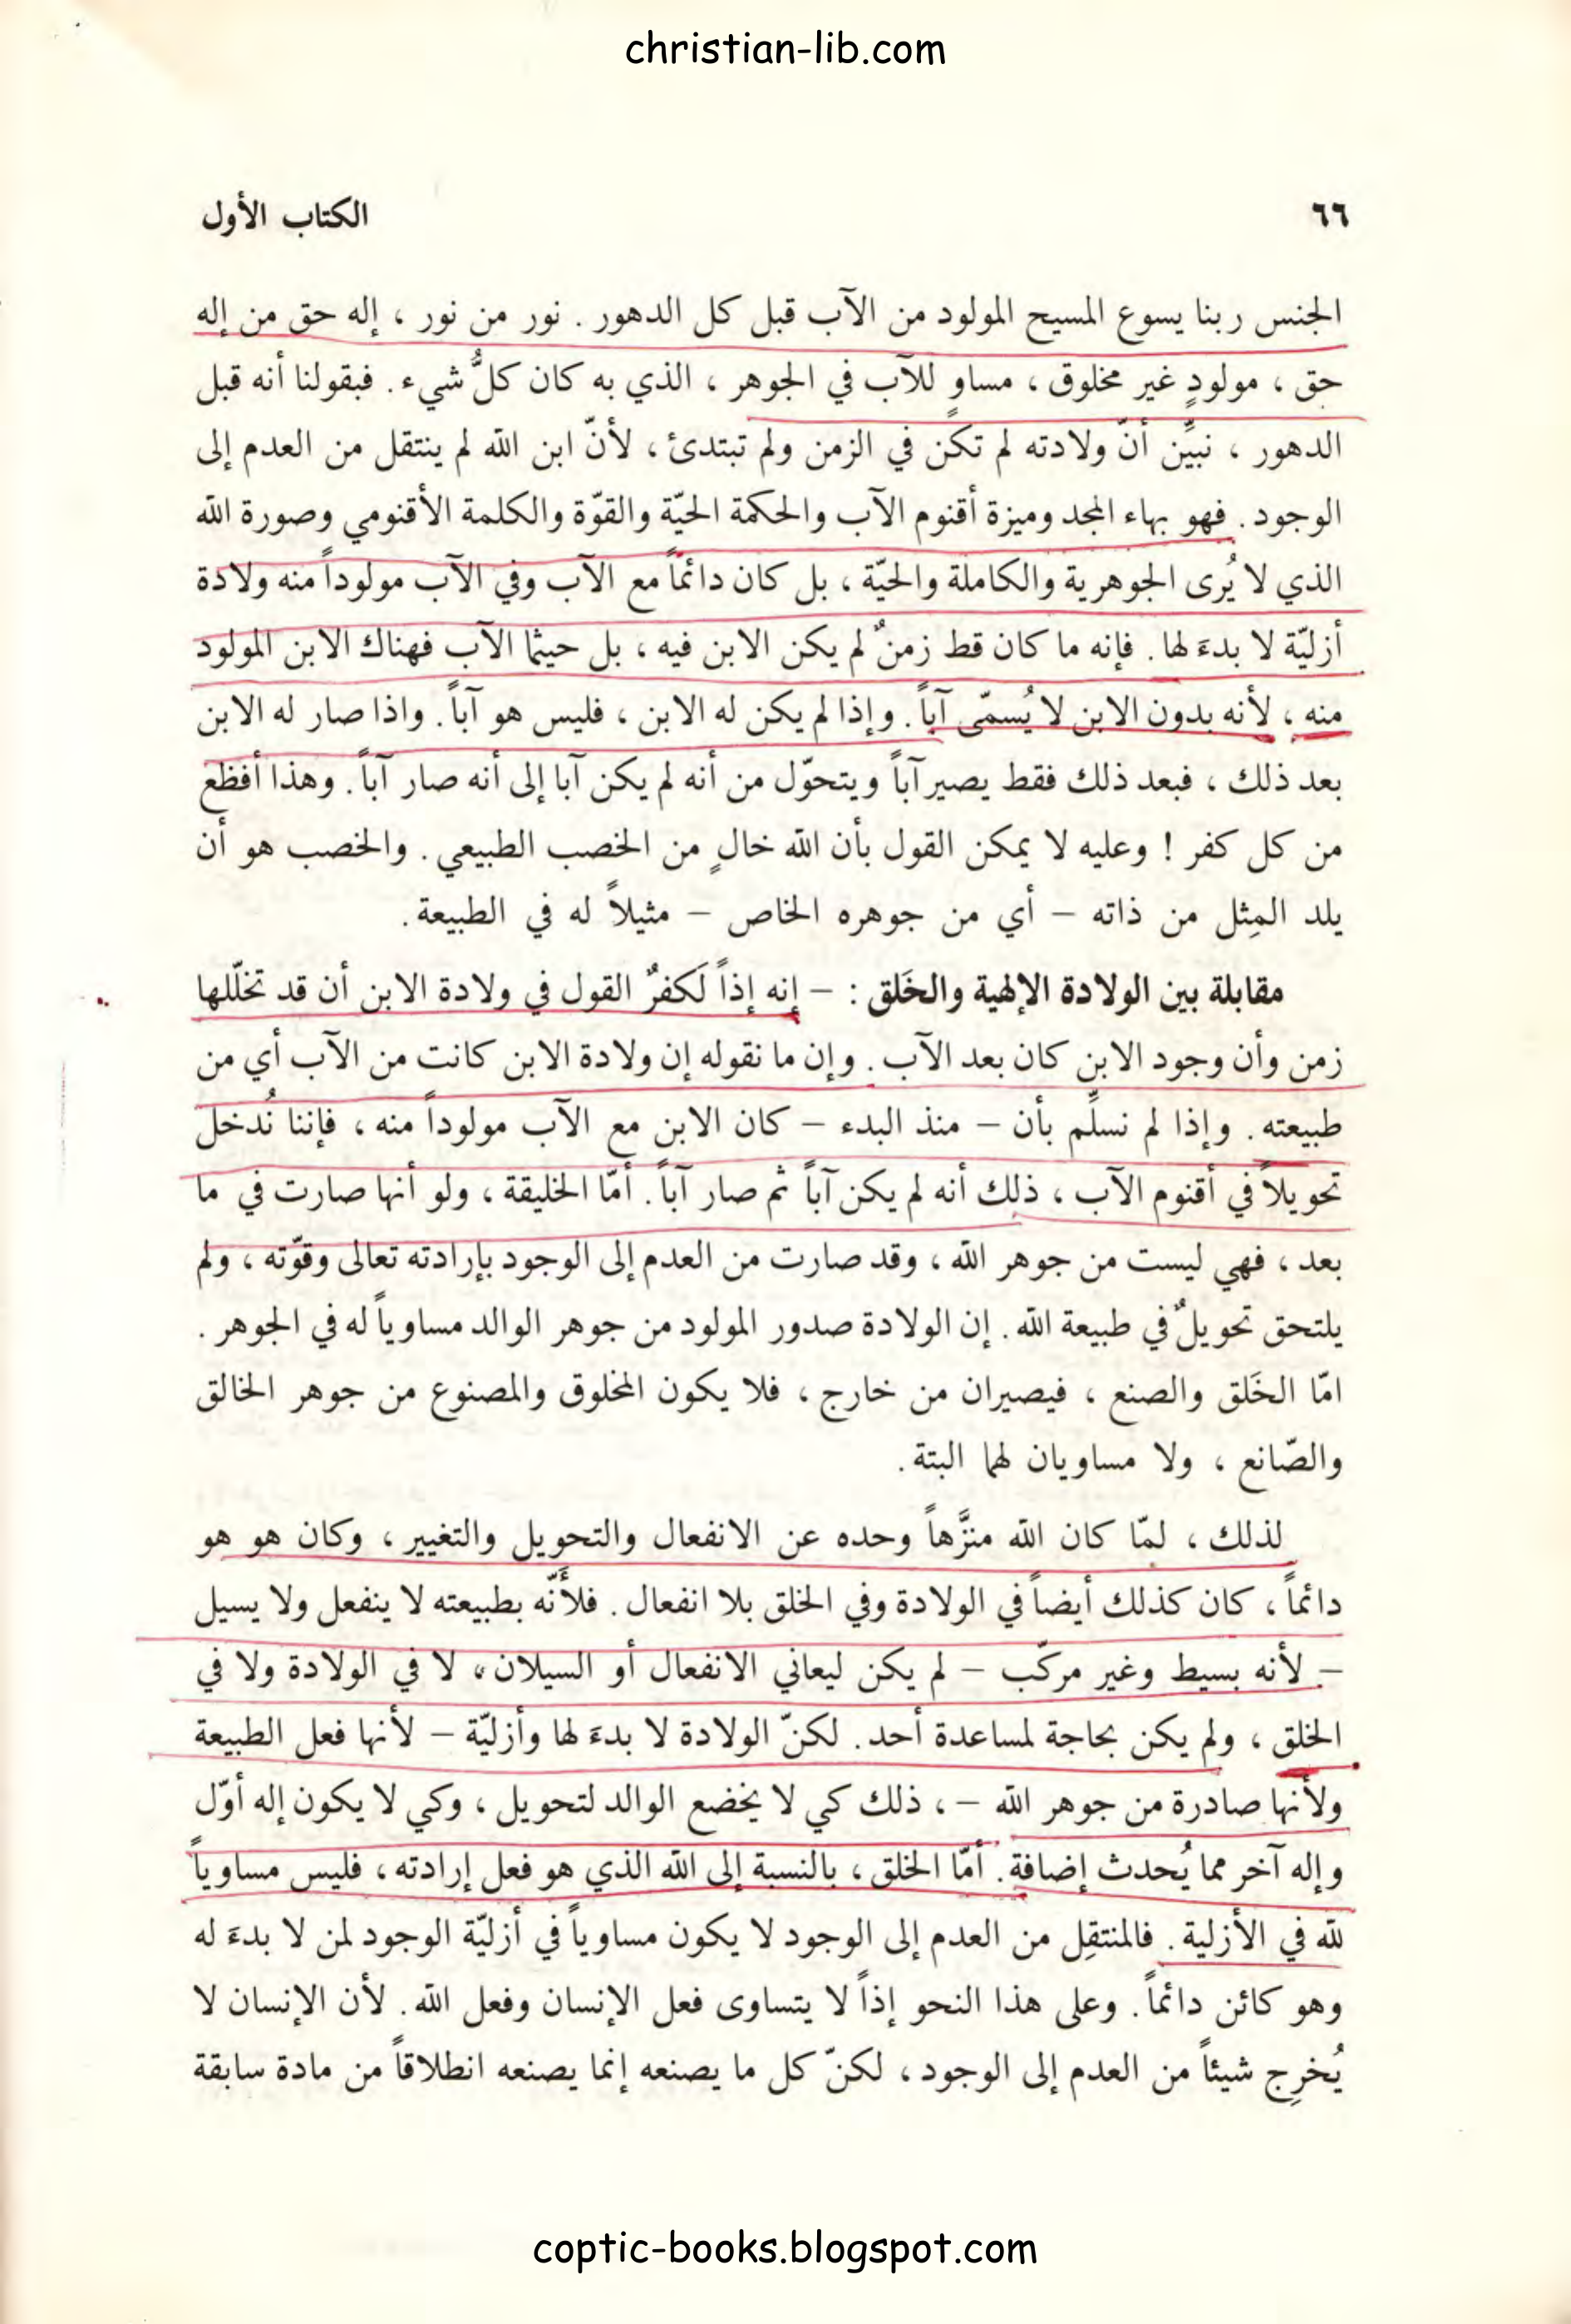 christian-lib.com
٦٦
الكتاب الأول
الجنس ربنا يسوع المسيح المولود من الآب قبل كل الدهور . نور من نور ، إله حق من إله
حق ، مولودٍ غير مخلوق ، مساوٍ للآب في الجوهر ، الذي به كان كلُّ شيء . فبقولنا أنه قبل
الدهور ، نبيِّن أنّ ولادته لم تكن في الزمن ولم تبتدئ ، لأنّ ابن الله لم ينتقل من العدم إلى
الوجود . فهو بهاء المجد وميزة أقنوم الآب والحكمة الحيّة والقوّة والكلمة الأقنومي وصورة الله
الذي لا يُرى الجوهرية والكاملة والحيّة ، بل كان دائماً مع الآب وفي الآب مولوداً منه ولادة
أزليّة لا بدءَ لها . فإنه ما كان قط زمنٌ لم يكن الابن فيه ، بل حيثما الآب فهناك الابن المولود
منه ، لأنه بدون الابن لا يُسمّى آباً . وإذا لم يكن له الابن ، فليس هو آباً . واذا صار له الابن
بعد ذلك ، فبعد ذلك فقط يصير آباً ويتحوّل من أنه لم يكن آبا إلى أنه صار آباً . وهذا أفظع
من كل كفر ! وعليه لا يمكن القول بأن الله خالٍ من الخصب الطبيعي . والخصب هو أن
يلد المِثل من ذاته – أي من جوهره الخاص – مثيلاً له في الطبيعة .
مقابلة بين الولادة الإلهية والخَلق : – إنه إذاً لَكفرٌ القول في ولادة الابن أن قد تخلّلها
زمن وأن وجود الابن كان بعد الآب . وإن ما نقوله إن ولادة الابن كانت من الآب أي من
طبيعته . وإذا لم نسلِّم بأن – منذ البدء – كان الابن مع الآب مولوداً منه ، فإننا نُدخل
تحويلاً في أقنوم الآب ، ذلك أنه لم يكن آباً ثم صار آباً . أمّا الخليقة ، ولو أنها صارت في ما
بعد ، فهي ليست من جوهر الله ، وقد صارت من العدم إلى الوجود بإرادته تعالى وقوّته ، ولم
يلتحق تحويلٌ في طبيعة الله . إن الولادة صدور المولود من جوهر الوالد مساوياً له في الجوهر .
امّا الخَلق والصنع ، فيصيران من خارج ، فلا يكون المخلوق والمصنوع من جوهر الخالق
والصّانع ، ولا مساويان لهما البتة .
لذلك ، لمّا كان الله منزَّهاً وحده عن الانفعال والتحويل والتغيير ، وكان هو هو
دائماً ، كان كذلك أيضاً في الولادة وفي الخلق بلا انفعال . فلأنّه بطبيعته لا ينفعل ولا يسيل
– لأنه بسيط وغير مركّب – لم يكن ليعاني الانفعال أو السيلان ، لا في الولادة ولا في
الخلق ، ولم يكن بحاجة لمساعدة أحد . لكنّ الولادة لا بدءَ لها وأزليّة – لأنها فعل الطبيعة
ولأنها صادرة من جوهر الله – ، ذلك كي لا يخضع الوالد لتحويل ، وكي لا يكون إله أوّل
وإله آخر مما يُحدث إضافة . أمّا الخلق ، بالنسبة إلى الله الذي هو فعل إرادته ، فليس مساوياً
لله في الأزلية . فالمنتقِل من العدم إلى الوجود لا يكون مساوياً في أزليّة الوجود لمن لا بدءَ له
وهو كائن دائماً . وعلى هذا النحو إذاً لا يتساوى فعل الإنسان وفعل الله . لأن الإنسان لا
يُخرِج شيئاً من العدم إلى الوجود ، لكنّ كل ما يصنعه إنما يصنعه انطلاقاً من مادة سابقة
coptic-books.blogspot.com